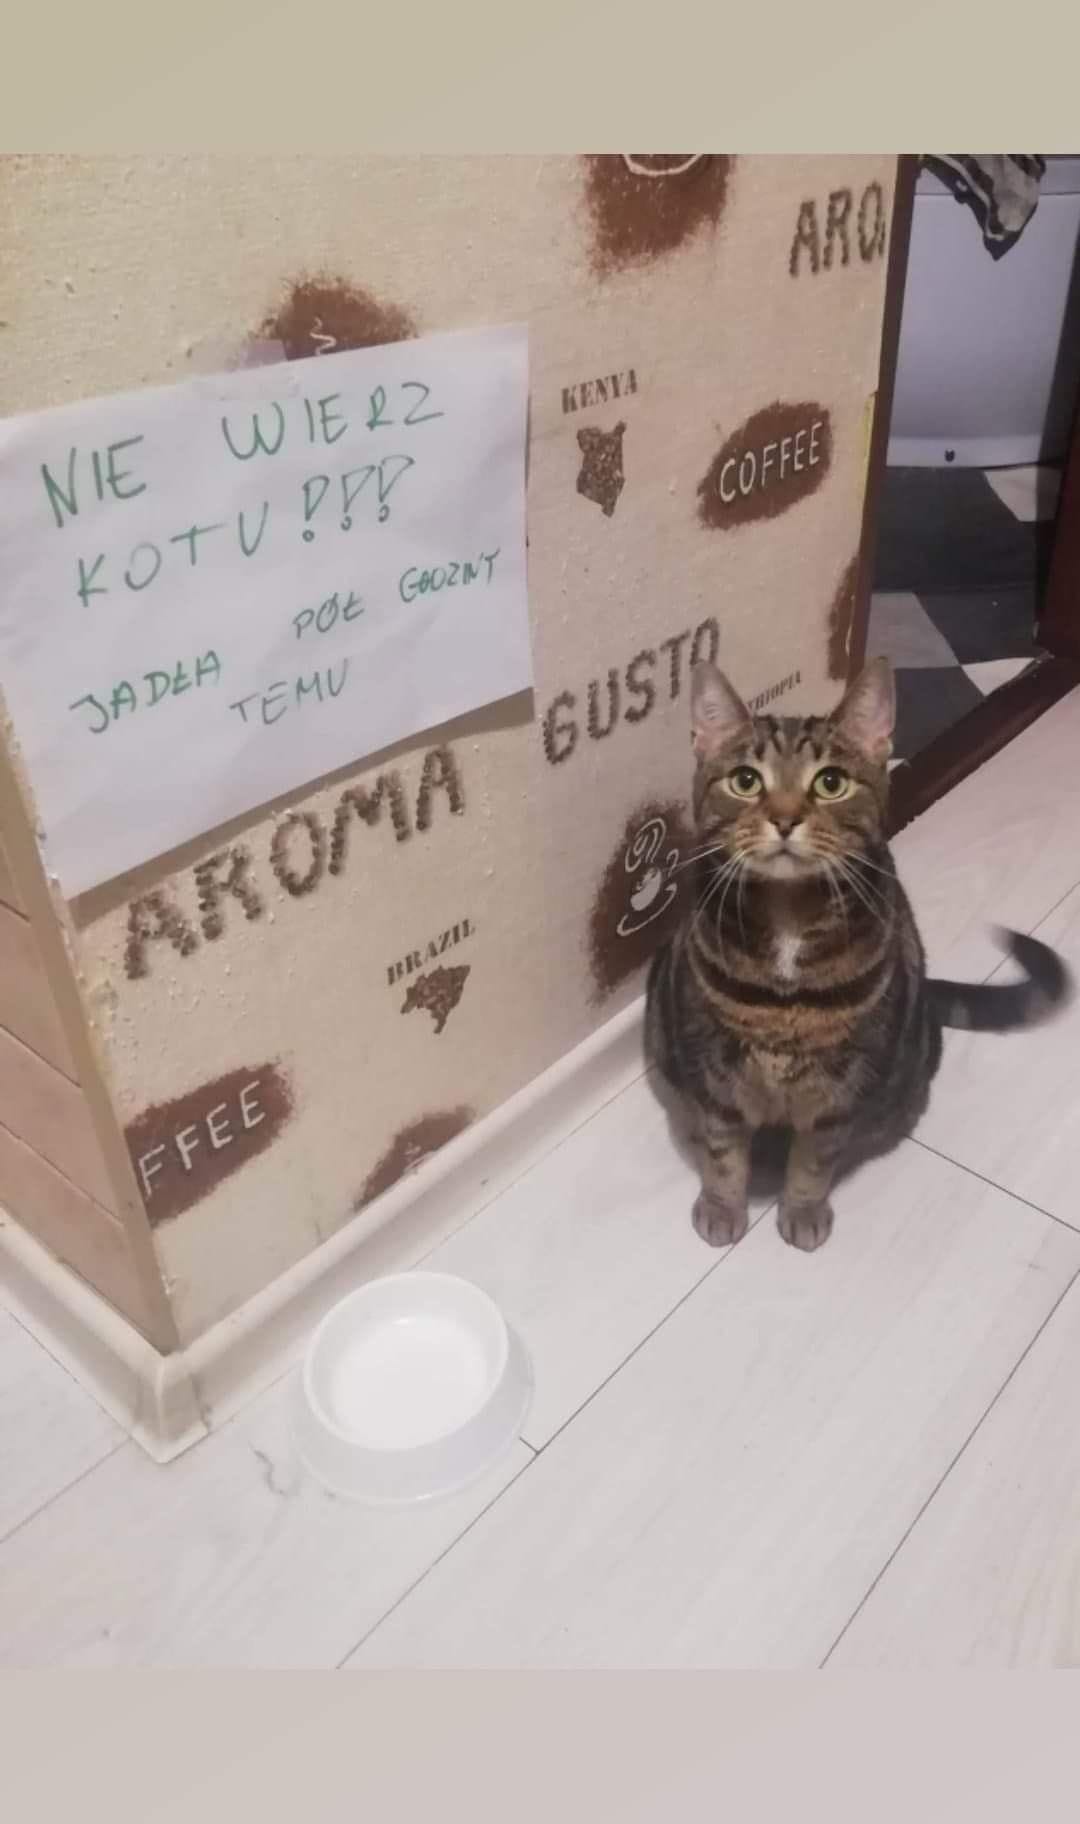 ARO
NIE WIERZ
KOTU!!!
JADŁA PÓŁ GODZINY
TEMU
KENYA
COFFEE
GUSTO
THIOPIA
AROMA
BRAZIL
FFEE